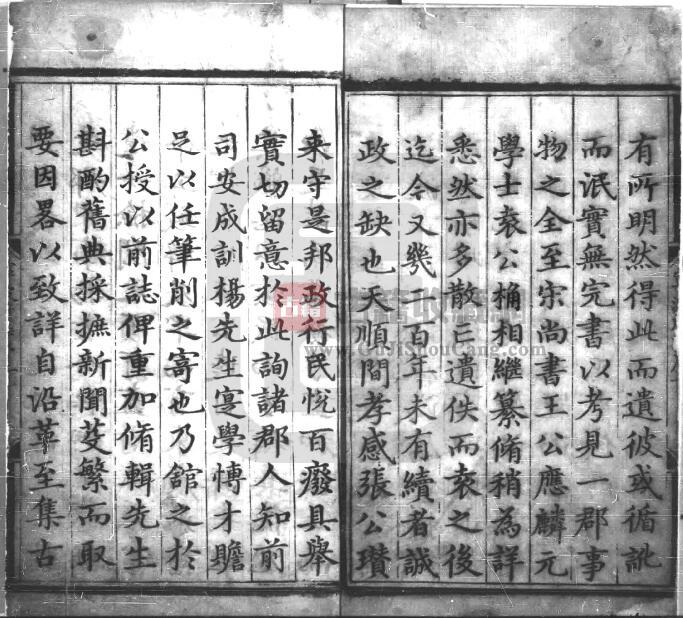 有所明然得此而遺彼或循訛
而泯實無完書以考見一郡事
物之全至宋尚書王公應麟元
學士袁公桷相繼纂脩稍為詳
悉然亦多散亡遺佚而袁之後
迄今又幾二百年未有續者誠
政之缺也天順間孝感張公瓚
来守是邦政行民悦百廢具舉
實切留意於此詢諸郡人知前
司安成訓楊先生寔學博才贍
足以任筆削之寄也乃舘之於
公授以前誌俾重加脩輯先生
斟酌舊典採摭新聞芟繁而取
要因畧以致詳自沿革至集古
古籍
www.GuJiShouCang.com